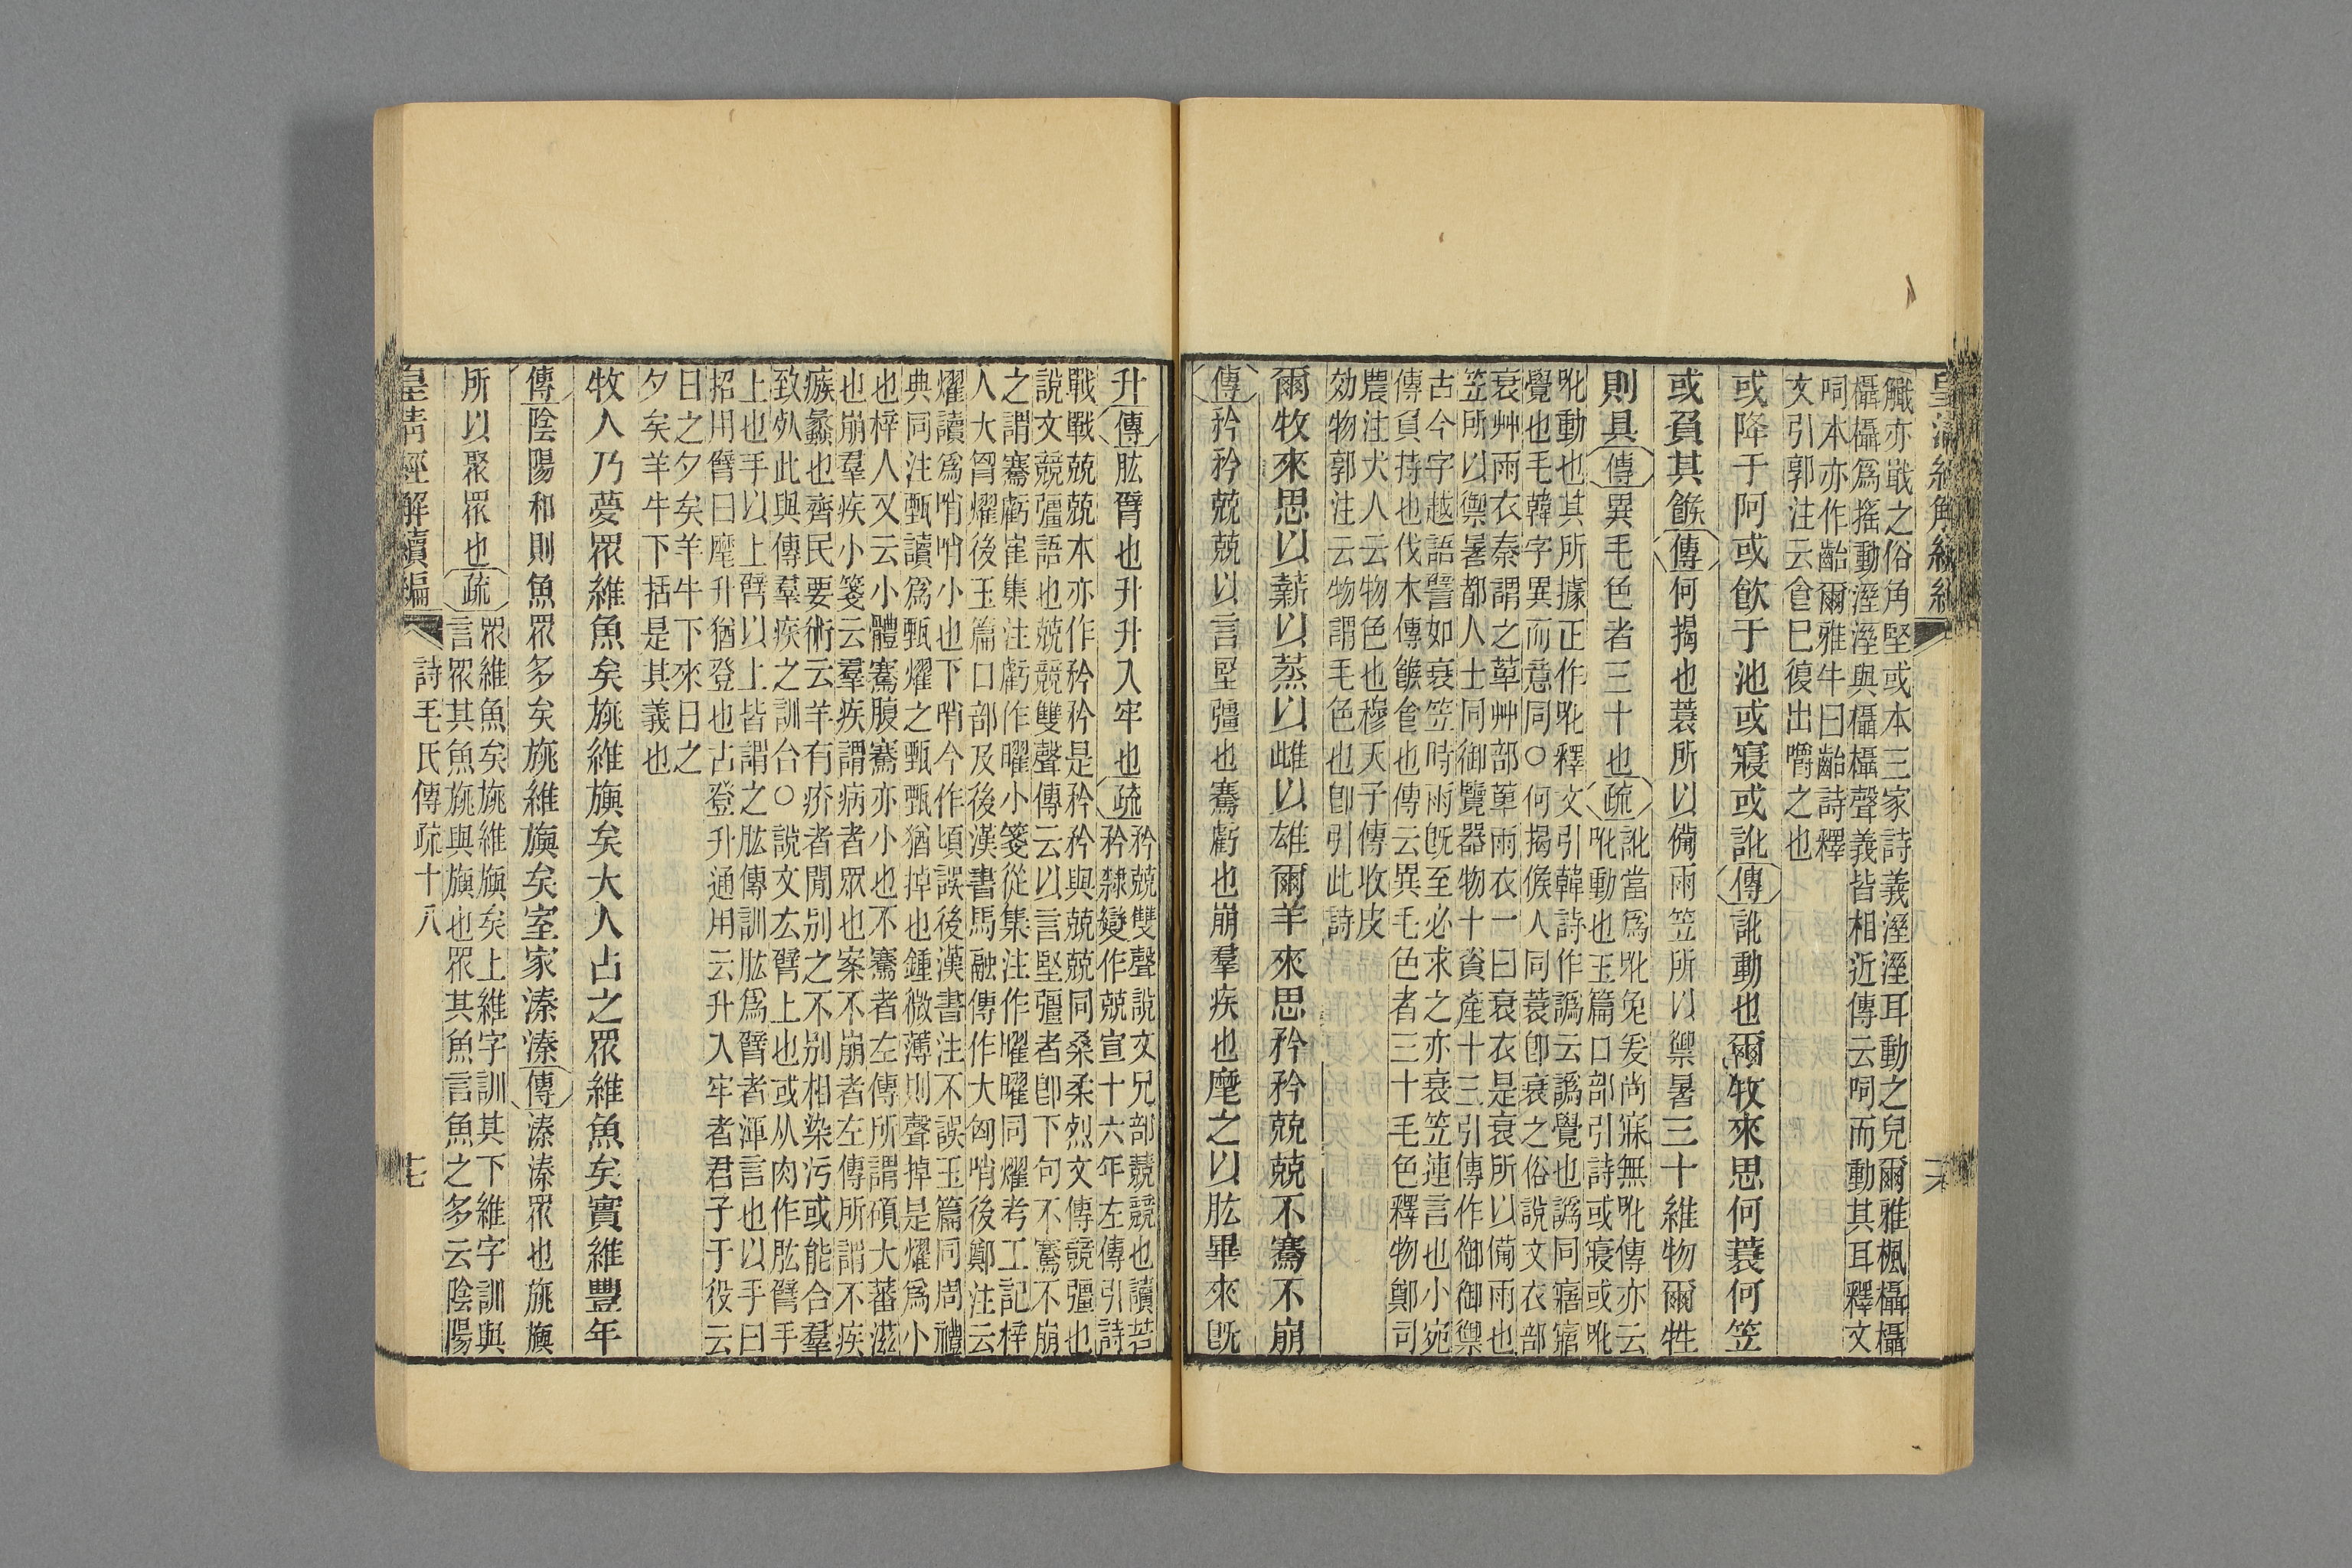 觿亦戢之俗角堅或本三家詩義溼溼耳動之皃爾雅楓欇欇
欇欇爲搖動溼溼與欇欇聲義皆相近傳云呞而動其耳釋文
呞本亦作齝爾雅牛曰齝詩釋
文引郭注云食已復出嚼之也
或降于阿或飮于池或寢或訛傳訛動也爾牧來思何蓑何笠
或負其餱傳何揭也蓑所以備雨笠所以禦暑三十維物爾牲
則具傳異毛色者三十也疏
訛當爲吪兔爰尚寐無吪傳亦云
吪動也玉篇口部引詩或寢或吪
吪動也其所據正作吪釋文引韓詩作譌云譌覺也譌同寤寤
覺也毛韓字異而意同○何揭候人同蓑卽衰之俗說文衣部
衰艸雨衣秦謂之萆艸部萆雨衣一曰衰衣是衰所以備雨也
笠所以禦暑都人士同御覽器物十資產十三引傳作御御禦
古今字越語譬如衰笠時雨旣至必求之亦衰笠連言也小宛
傳負持也伐木傳餱食也傳云異毛色者三十毛色釋物鄭司
農注犬人云物色也穆天子傳收皮
効物郭注云物謂毛色也卽引此詩
爾牧來思以薪以蒸以雌以雄爾羊來思矜矜兢兢不騫不崩
傳矜矜兢兢以言堅彊也騫虧也崩羣疾也麾之以肱畢來旣
升傳肱臂也升升入牢也疏
矜兢雙聲說文兄部兢競也讀若
矜隸變作兢宣十六年左傳引詩
戰戰兢兢本亦作矜矜是矜矜與兢兢同桑柔烈文傳競彊也
說文競彊語也兢競雙聲傳云以言堅彊者卽下句不騫不崩
之謂騫虧崔集注虧作曜小箋從集注作曜曜同燿考工記梓
人大胷燿後玉篇口部及後漢書馬融傳作大匈哨後鄭注云
燿讀爲哨哨小也下哨今作頃誤後漢書注不誤玉篇同周禮
典同注甄讀爲甄燿之甄甄猶掉也鍾微薄則聲掉是燿爲小
也梓人又云小體騫腹騫亦小也不騫者左傳所謂碩大蕃滋
也崩羣疾小箋云羣疾謂病者眾也案不崩者左傳所謂不疾
瘯蠡也齊民要術云羊有疥者閒別之不別相染污或能合羣
致𣦸此與傳羣疾之訓合○說文厷臂上也或从肉作肱臂手
上也手以上臂以上皆謂之肱傳訓肱爲臂者渾言也以手曰
招用臂曰麾升猶登也古登升通用云升入牢者君子于役云
日之夕矣羊牛下來日之
夕矣羊牛下括是其義也
牧人乃夢眾維魚矣旐維旟矣大人占之眾維魚矣實維豐年
傳陰陽和則魚眾多矣旐維旟矣室家溱溱傳溱溱眾也旐旟
所以聚眾也疏
眾維魚矣旐維旟矣上維字訓其下維字訓與
言眾其魚旐與旟也眾其魚言魚之多云陰陽
皇淸經解續編 詩毛氏傳疏十八 十七